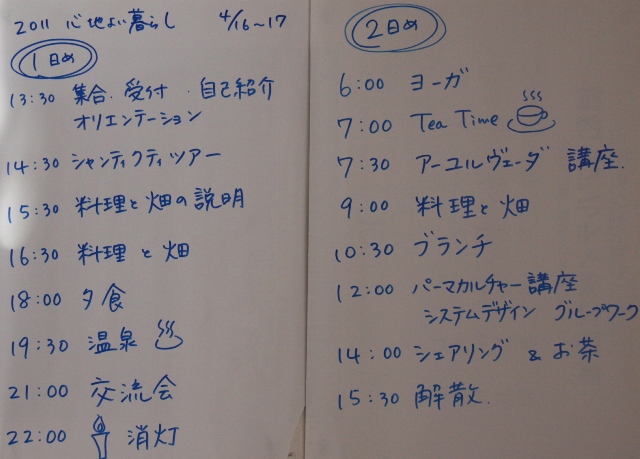 2011 心地よい暮らし 4/16～17
1日め
13:30 集合.受付 .自己紹介
オリエンテーション
14:30 シャンティクティツアー
15:30 料理と畑の説明
16:30 料理と畑
18:00 夕食
19:30 温泉
21:00 交流会
22:00 消灯
2日め
6:00 ヨーガ
7:00 Tea Time
7:30 アーユルヴェーダ 講座.
9:00 料理と畑
10:30 ブランチ
12:00 パーマカルチャー講座
システムデザイン グループワーク
14:00 シェアリング & お茶
15:30 解散.